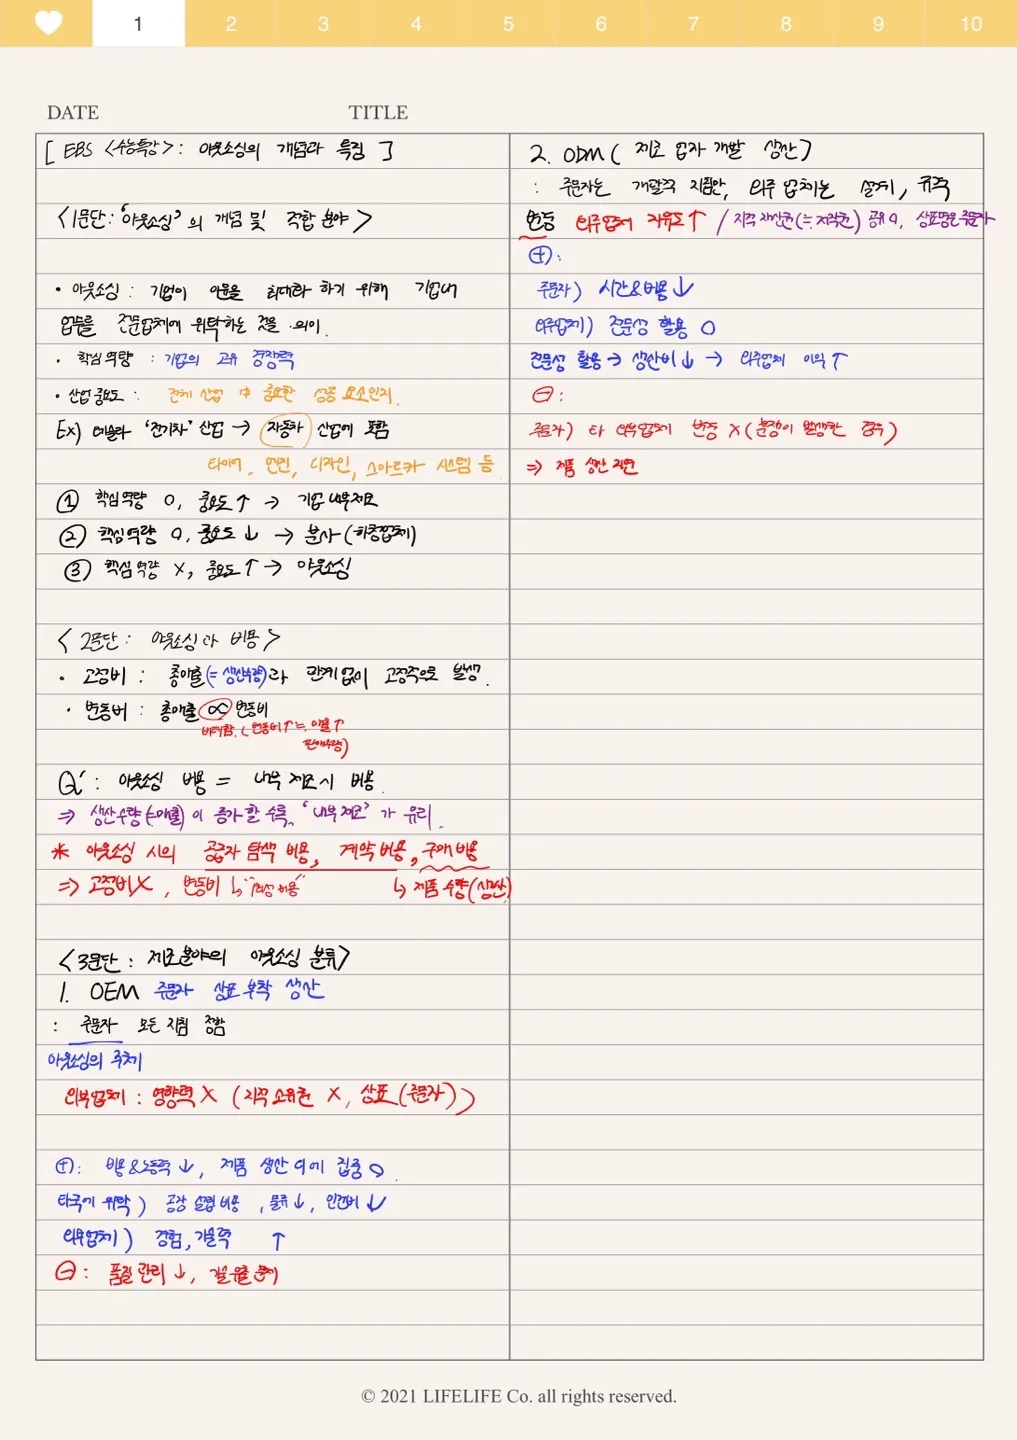 1 2 3 4 5 6 7 8 9 10
DATE
TITLE
[ EBS <수능특강> : 아웃소싱의 개념과 특징 ]
<1문단: '아웃소싱'의 개념 및 적합 분야>
• 아웃소싱 : 기업이 이윤을 최대화 하기 위해 기업내
업무를 전문업체에 위탁하는 것을 의미.
• 핵심 역량 : 기업의 고유 경쟁력
• 산업 중요도 : 전체 산업 中 중요한 성공 요소인지.
Ex) 테슬라 '전기차' 산업 → 자동차 산업에 포함
타이어, 엔진, 디자인, 스마트카 시스템 등
① 핵심역량 O, 중요도 ↑ → 기업 내부제조
② 핵심역량 O, 중요도 ↓ → 분사 (하청업체)
③ 핵심역량 X, 중요도 ↑ → 아웃소싱
< 2문단 : 아웃소싱과 비용 >
• 고정비 : 총매출(= 생산수량)과 관계 없이 고정적으로 발생.
• 변동비 : 총매출 ∝ 변동비
비례함. ( 변동비↑ ≒ 매출↑
판매수량)
Q' : 아웃소싱 비용 = 내부 제조시 비용
⇒ 생산수량(≒매출)이 증가할 수록, '내부 제조'가 유리.
* 아웃소싱 시의 공급자 탐색 비용, 계약 비용, 구매 비용
⇒ 고정비X, 변동비 ↳ 비용" ↳ 제품 수량(생산)
<3문단 : 제조분야의 아웃소싱 분류>
1. OEM 주문자 상표 부착 생산
: 주문자 모든 지침 정함
아웃소싱의 주체
외부업체 : 영향력 X (지적 소유권 X, 상표 (주문자))
⊕: 비용&노동력 ↓, 제품 생산 외에 집중 O.
타국에 위탁) 공장 설립 비용, 물류 ↓, 인건비 ↓
외부업체) 경험, 기술력 ↑
⊖: 품질 관리 ↓, 기술유출
2. ODM ( 제조 업자 개발 생산 )
: 주문자는 개략적 지침만, 외주 업체는 설계, 규격
변동 외주업체 자유도↑ / 지적 재산권(≒저작권) 공유 O, 상표명은 주문자
⊕:
주문자) 시간&비용 ↓
외주업체) 전문성 활용 O
전문성 활용 → 생산비 ↓ → 외주업체 이익 ↑
⊖:
주문자) 타 외부업체 변동 X (분쟁이 발생한 경우)
⇒ 제품 생산 지연
© 2021 LIFELIFE Co. all rights reserved.